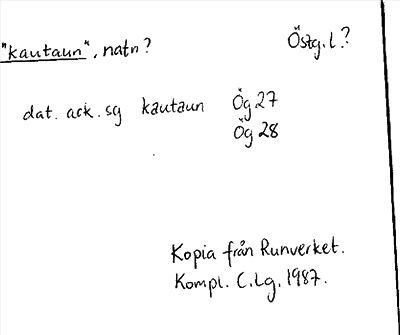 "kautaun", natn? Östg.l.?
dat. ack. sg kautaun Ög 27
Ög 28
Kopia från Runverket.
Kompl. C.Lg. 1987.